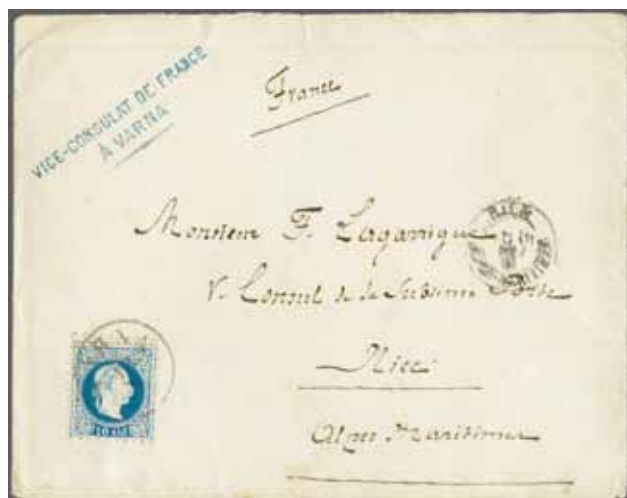 VICE-CONSULAT DE FRANCE
À VARNA
France
Monsieur F. Lagarrigue
V. Consul de la Sublime Porte
Nice
Alpes Maritimes
NICE
10